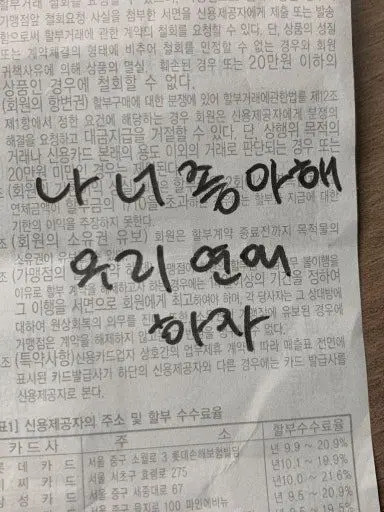 할부거래 철회요청
가맹점앞 철회요청 사실을 첨부한 서면을 신용제공자에게 제출 또는 발송
함으로써 할부거래에 관한 계약의 철회를 요청할 수 있다. 단, 상품의 성질
또는 계약체결의 형태에 비추어 철회를 인정할 수 없는 경우와 회원
귀책사유에 의해 상품의 멸실, 훼손된 경우 또는 20만원 이하의
상품인 경우에 철회할 수 없다.
(회원의 항변권) 할부구매에 대한 분쟁에 있어 할부거래에관한법률 제12조
제1항에서 정한 요건에 해당하는 경우 회원은 신용제공자에게 분쟁의
해결을 요청하고 대금지급을 거절할 수 있다. 단, 상행위 목적의
거래나 신용카드 본래의 용도 이외의 거래로 판단되는 경우 또는
20만원 미만
나 너 좋아해
연체금액이 초과하 지급에 대한
기한의 이익을 주장하지 못한다.
조 (회원의 소유권 유보) 회원은 할부계약 종료전까지 목적물의
소유권이
우리 연애
조 (가맹점의 불이행을
이유로 할부 계약을 해제하고자 하는 경우에는 이상의 기간을 정하여
그 이행을 서면으로 회원에게 최고하여야 하며, 각 당사자는 그 상대방에
대하여 원상회복의 의무를 유보된 경우에
가맹점은 계약을 해제하지 않고 없다.
하자
조 (특약사항) 신용카드업자 상호간의 업무제휴 계약에 따라 매출표 전면에
표시된 카드발급사가 하단의 신용제공자와 다른 경우에는 카드 발급사를
신용제공자로 본다.
표1] 신용제공자의 주소 및 할부 수수료율
카 드 사 주 소 할부수수료율
롯 데 카 드 서울 중구 소월로 3 롯데손해보험빌딩 년 9.9 ~ 20.9%
비 씨 카 드 서울 서초구 효령로 275 년10.1 ~ 19.9%
삼 성 카 드 서울 중구 세종대로 67 년10.0 ~ 21.6%
서울 중구 을지로 100 파인에비뉴 년 9.5 ~ 20.9%